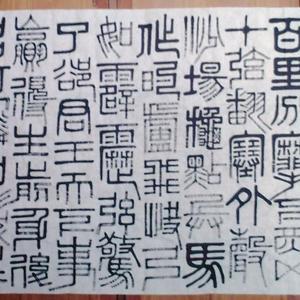 百里分麾下炙五
十弦翻塞外聲
沙場秋點兵馬
作的盧飛快弓
如霹靂弦驚
了卻君王天下事
贏得生前身後
名可憐白髮生